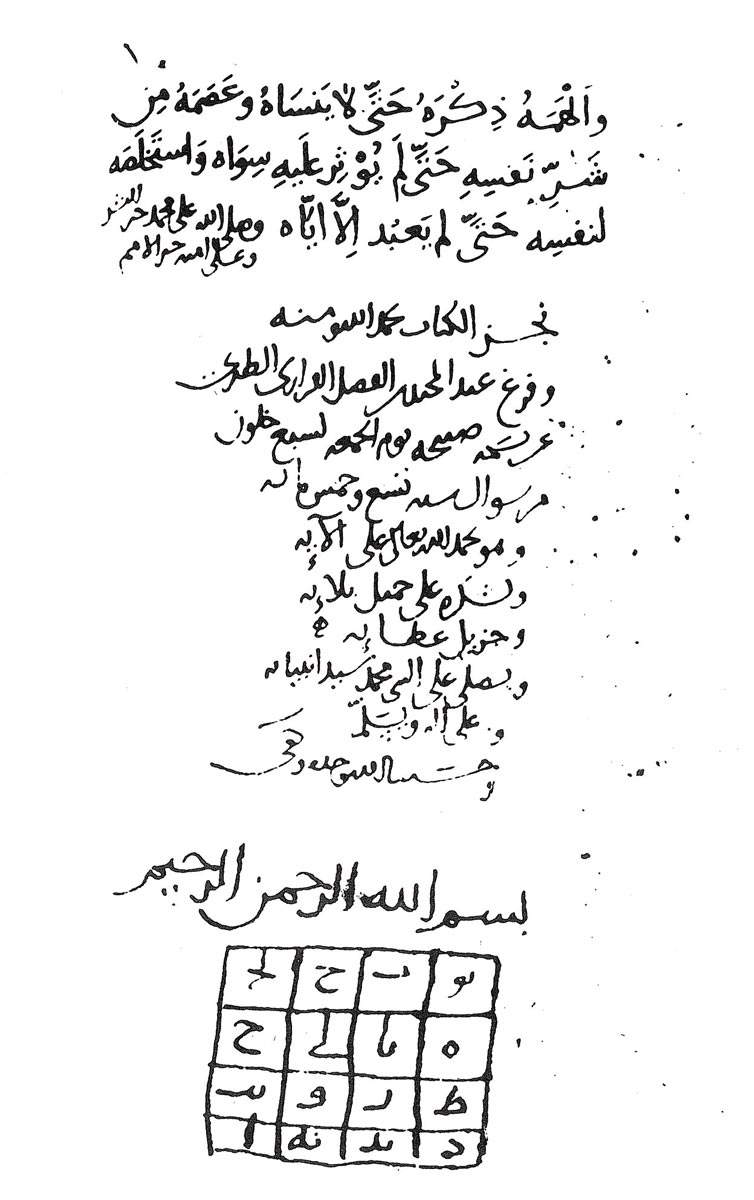 ١
وَأَلْهَمَهُ ذِكْرَهُ حَتَّى لَا يَنسَاهُ وعَصَمَهُ مِن
شَرِّ نَفسِهِ حَتَّى لَم يُؤْثِر عَلَيهِ سِوَاه وَاستَخلَصَه
لنفسِه حَتَّى لم يَعبُد إِلَّا ايَّاه وصلى الله على محمد خير البشر
وعلى امته خير الامم
نجز الكتاب بحمد الله ومنه
وفرغ عبد المجيد بن الفضل الفراوي الطبري
عن نسخه صبيحه يوم الجمعه لسبع خلون
من شوال سنه تسع وخمس مائه
وهو يحمد الله تعالى على آلائه
ويشكره على جميل بلائه
وجزيل عطائه
ويصلي على النبي محمد سيد انبيائه
وعلى اله ويسلّم
وحسبنا الله وحده وكفى
بسم الله الرحمن الرحيم
يو ب ج يج
ه يا ي ح
ط ز و يب
د يد يه ا